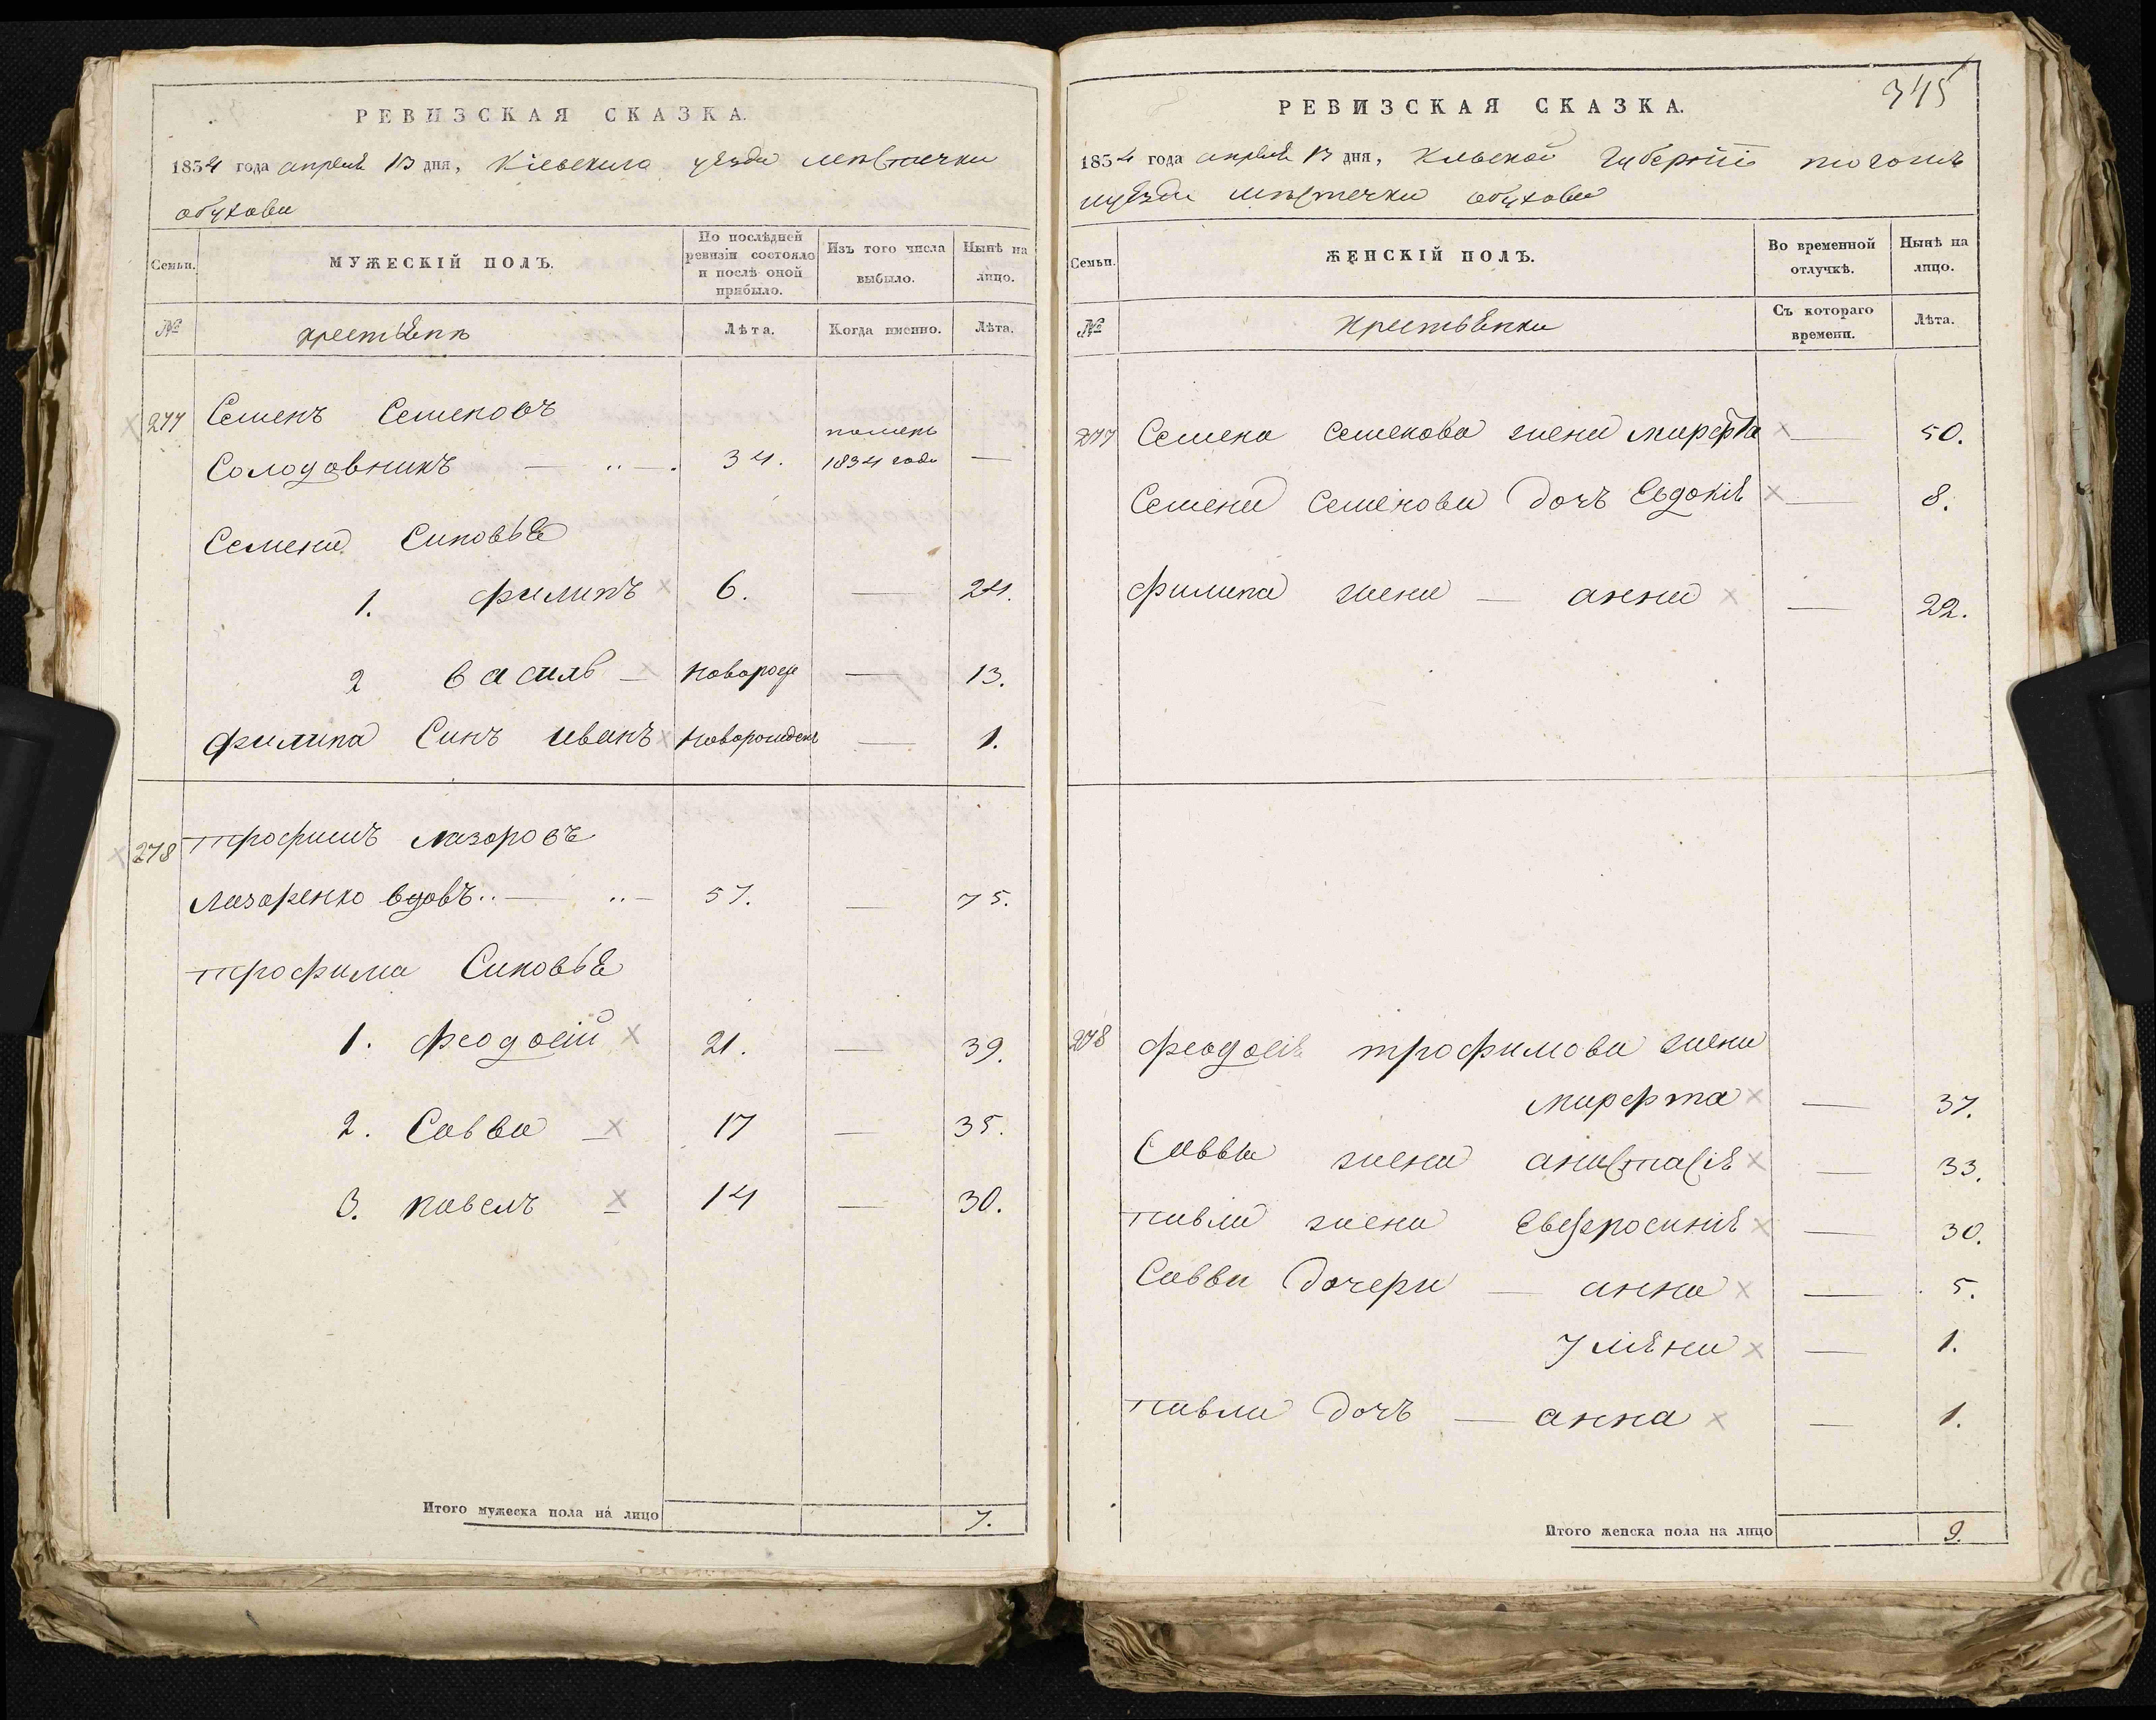 РЕВИЗСКАЯ СКАЗКА.
1854 года апреля 13 дня, Кіевскаго уезда местечка
обухова
Семьи.
МУЖЕСКІЙ ПОЛЪ.
По послѣдней ревизіи состояло и послѣ оной прибыло.
Изъ того числа выбыло.
Нынѣ на лицо.
№
крестьяне
Лѣта.
Когда именно.
Лѣта.
277 Семенъ Семеновъ
Солодовникъ — „ — . 34. померъ 1834 года —
Семена Синовья
1. филипъ 6. — 24.
2 василь — новорож — 13.
филипа Синъ иванъ новорожден — 1.
278 трофимъ лазоровъ
лазаренко вдовъ.. — „ — 57. — 75.
трофима Синовья
1. феодосій 21. — 39.
2. Савва — 17 — 35.
3. павелъ — 14 — 30.
Итого мужеска пола на лицо 7.
345
РЕВИЗСКАЯ СКАЗКА.
1854 года апреля 13 дня, Киевской Губерніи тогожъ
уезда местечка обухова
Семьи.
ЖЕНСКІЙ ПОЛЪ.
Во временной отлучкѣ.
Нынѣ на лицо.
№
крестьянки
Съ котораго времени.
Лѣта.
277 Семена семенова жена марфта — 50.
Семена семенова дочъ Евдокія — 8.
филипа жена — анна — 22.
278 феодосія трофимова жена
марфта — 37.
Саввы жена анастасія — 33.
павла жена Евфросинія — 30.
Савви дочери — анна — 5.
Уляна — 1.
павла дочъ — анна — 1.
Итого женска пола на лицо 9.